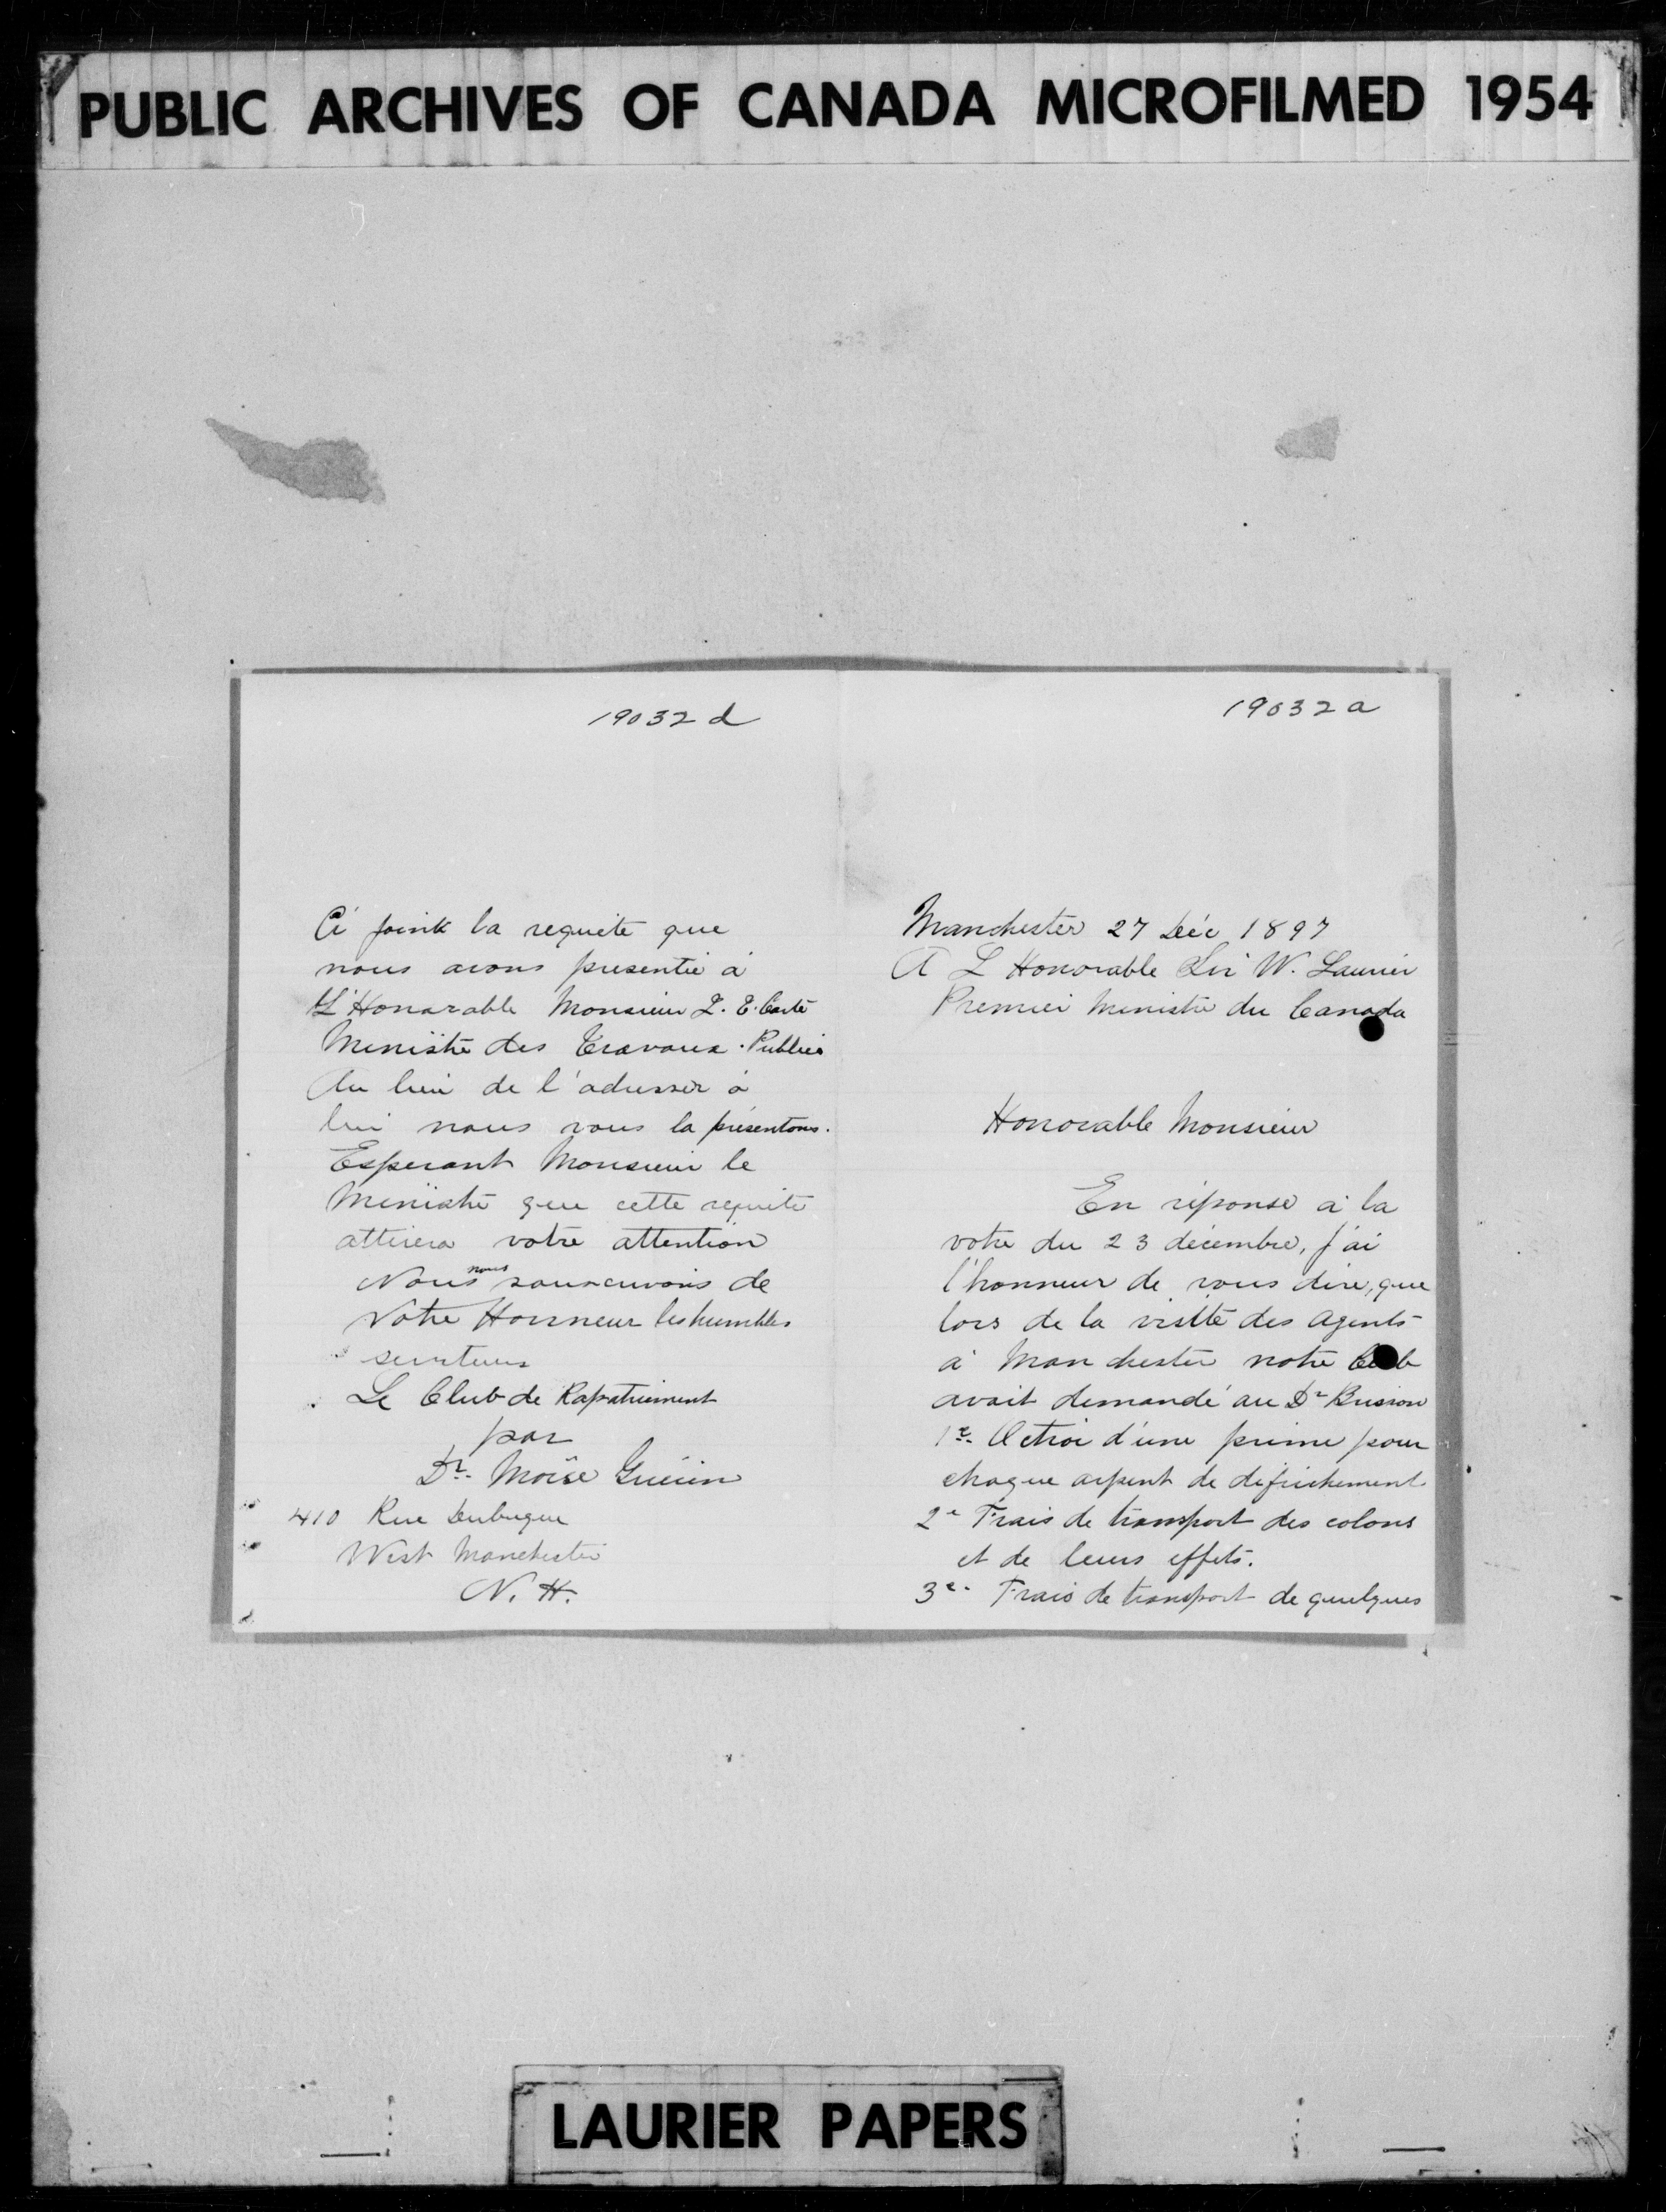 PUBLIC ARCHIVES OF CANADA MICROFILMED 1954
19032 d
Ci joint la requete que
nous avons presentée à
L'Honorable Monsieur I. E. Carté
Ministre des Travaux Publics
Au lieu de l'adresser à
lui nous vous la présentons.
Esperant Monsieur le
Ministre que cette requite
attirera votre attention
Nous nous souscrivons de
Votre Honneur les humbles
serviteurs
Le Club de Rapatriement
par
Dr. Moïse Guérin
410 Rue Dubuque
West Manchester
N. H.
19032 a
Manchester 27 Déc 1897
A L Honorable Sir W. Laurier
Premier Ministre du Canada
Honorable Monsieur
En réponse à la
votre du 23 décembre, j'ai
l'honneur de vous dire, que
lors de la visite des agents
à Manchester notre Club
avait demandé au Dr Brisson
1e. Octroi d'une prime pour
chaque arpent de défrichement
2e Frais de transport des colons
et de leurs effets.
3e. Frais de transport de quelques
LAURIER PAPERS